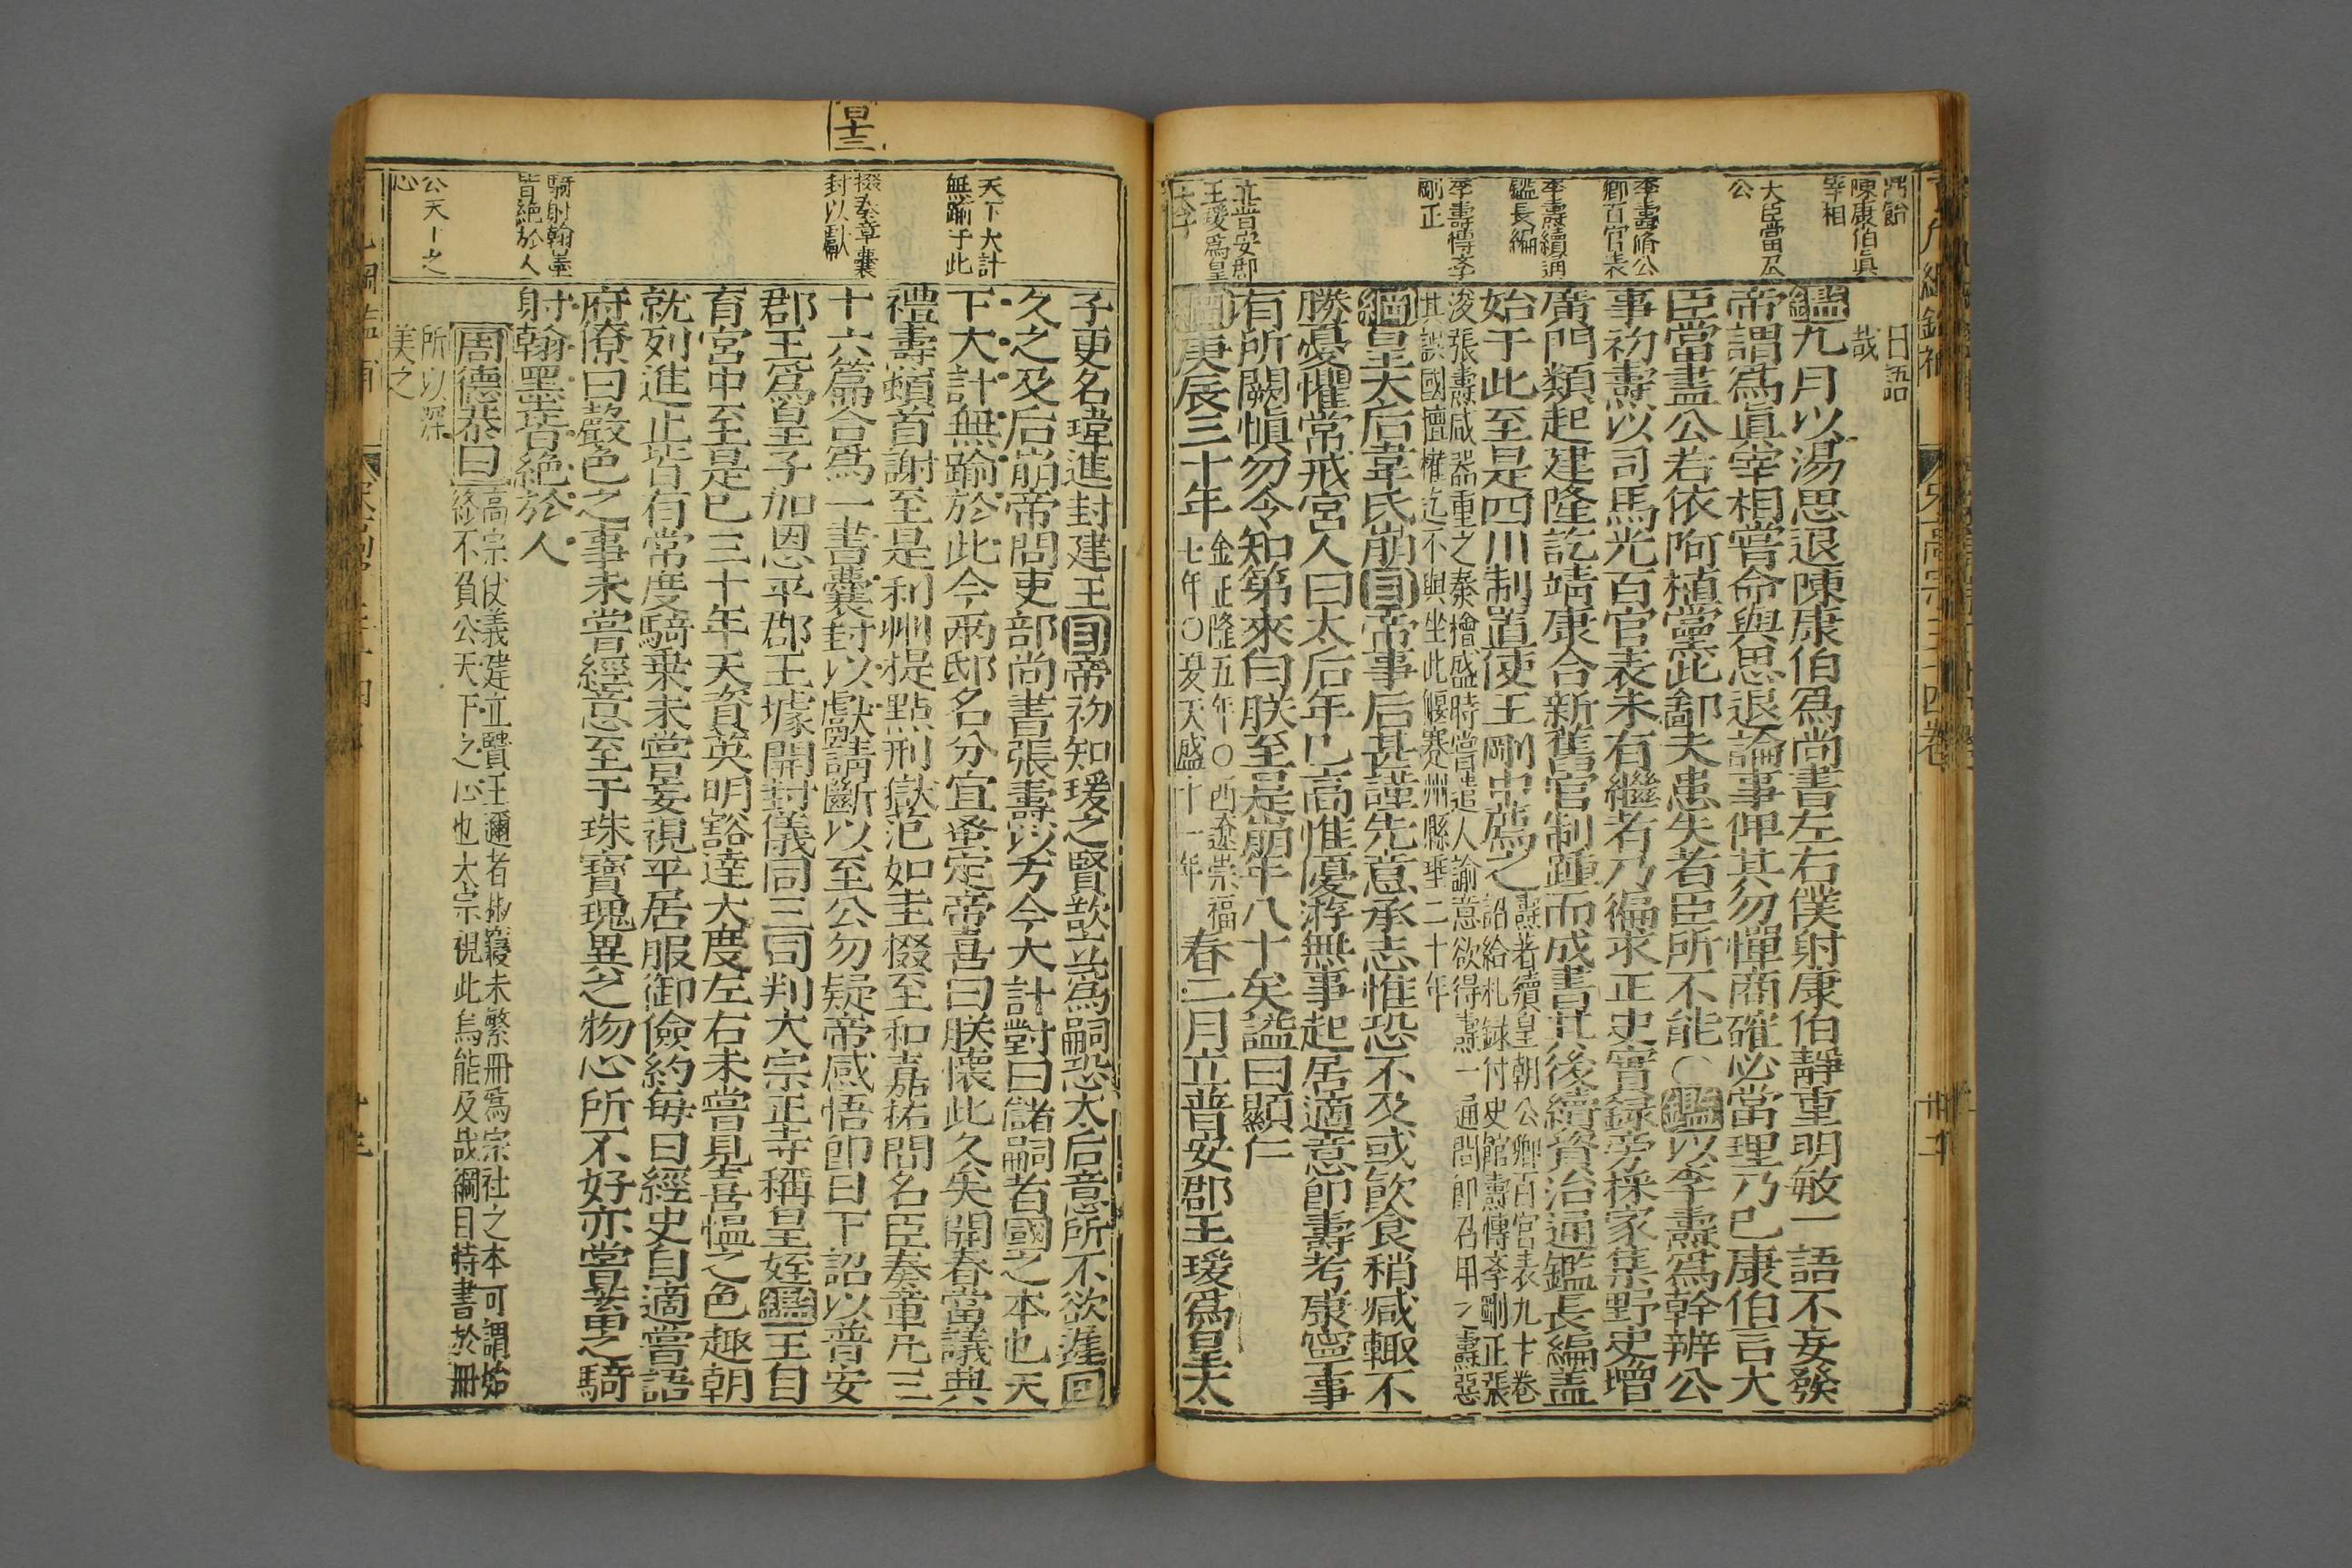 陳康伯眞
宰相
大臣當盡
公
李燾脩公
卿百官表
李燾續通
鑑長編
李燾博李
剛正
立普安郡
王瑗爲皇
太子
日語
哉
鑑九月以湯思退陳康伯爲尚書左右僕射康伯靜重明敏一語不妄發
帝謂爲眞宰相嘗命與思退論事俾其勿憚商確必當理乃已康伯言大
臣當盡公若依阿植黨此鄙夫患失者臣所不能○鑑以李燾爲幹辨公
事初燾以司馬光百官表未有繼者乃徧求正史實録旁採家集野史增
廣門類起建隆訖靖康合新舊官制踵而成書其後續資治通鑑長編盖
始于此至是四川制置使王剛中薦之
燾著續皇朝公卿百官表九十卷
詔給札録付史館燾博李剛正張
浚張燾咸器重之秦檜盛時嘗遣人諭意欲得燾一通問即召用之燾惡
其誤國擅權迄不與坐此偃蹇州縣垂二十年
綱皇太后韋氏崩目帝事后甚謹先意承志惟恐不及或飮食稍減輙不
勝憂懼常戒宮人曰太后年已高惟優游無事起居適意即壽考康寧事
有所闕愼勿令知第來曰朕至是崩年八十矣謚曰顯仁
綱庚辰三十年
金正隆五年○西遼崇福
七年○夏天盛十一年
春二月立普安郡王瑗爲皇太
天下大計
無踰于此
掇奏章囊
封以獻
騎射翰墨
皆絶於人
公天下之
心
子更名瑋進封建王目帝初知瑗之賢欲立爲嗣恐太后意所不欲遲回
久之及后崩帝問吏部尚書張燾以方今大計對曰儲嗣者國之本也天
下大計無踰於此今兩邸名分宜蚤定帝喜曰朕懷此久矣開春當議典
禮燾頓首謝至是利州提點刑獄范如圭掇至和嘉祐間名臣奏章凡三
十六篇合爲一書囊封以獻請斷以至公勿疑帝感悟即日下詔以普安
郡王爲皇子加恩平郡王璩開封儀同三司判大宗正寺稱皇姪鑑王自
育宮中至是已三十年天資英明豁達大度左右未嘗見喜愠之色趣朝
就列進止皆有常度騎乗未嘗妄視平居服御儉約毎日經史自適嘗語
府僚曰聲色之事未嘗經意至于珠寶瑰異之物心所不好亦嘗畜之騎
射翰墨皆絶於人
周德恭曰
高宗仗義建立賢王邇者掖寢未繁冊爲宗社之本可謂始
終不負公天下之心也太宗視此烏能及哉綱目特書於冊
所以深
美之